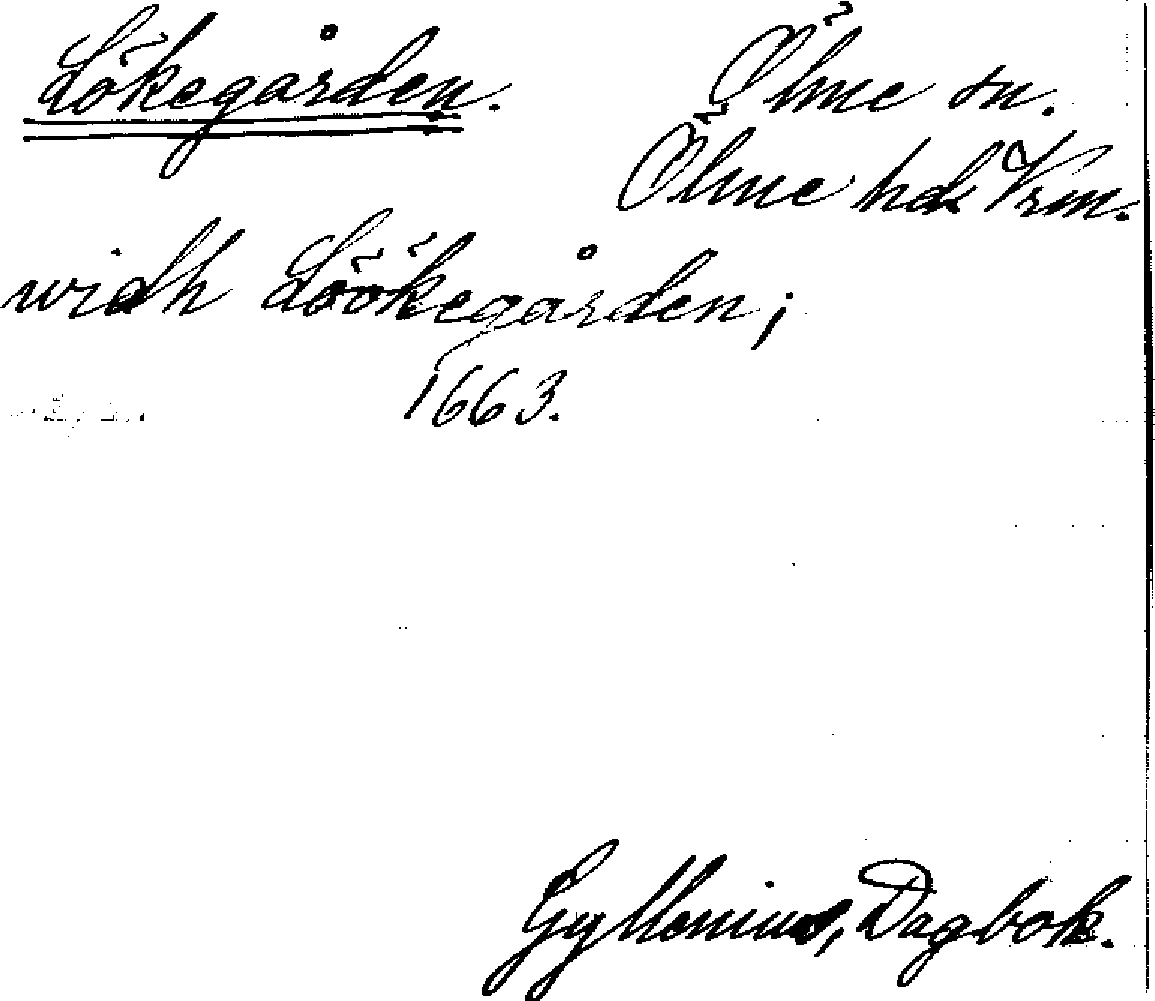 Lökegården.
Ölme sn.
Ölme hd. Vrm.
widh Löökegården;
1663.
Gyllenius, Dagbok.